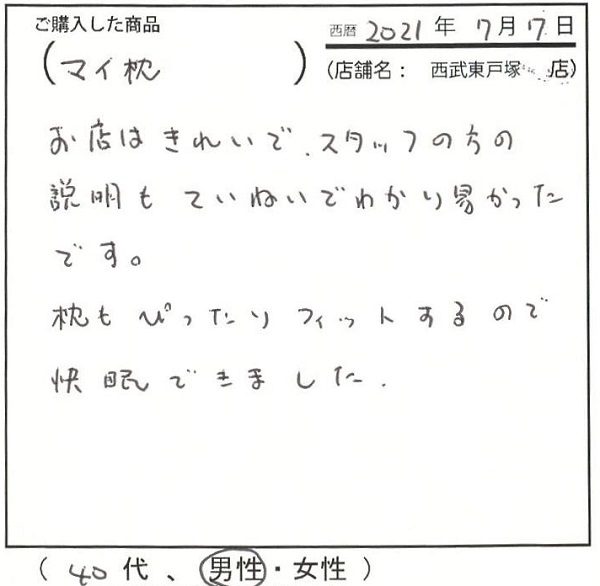 ご購入した商品
西暦 2021年 7月 7日
(マイ枕)
(店舗名： 西武東戸塚 店)
お店はきれいで、スタッフの方の
説明もていねいでわかり易かった
です。
枕もぴったりフィットするので
快眠できました.
( 40代、男性・女性 )